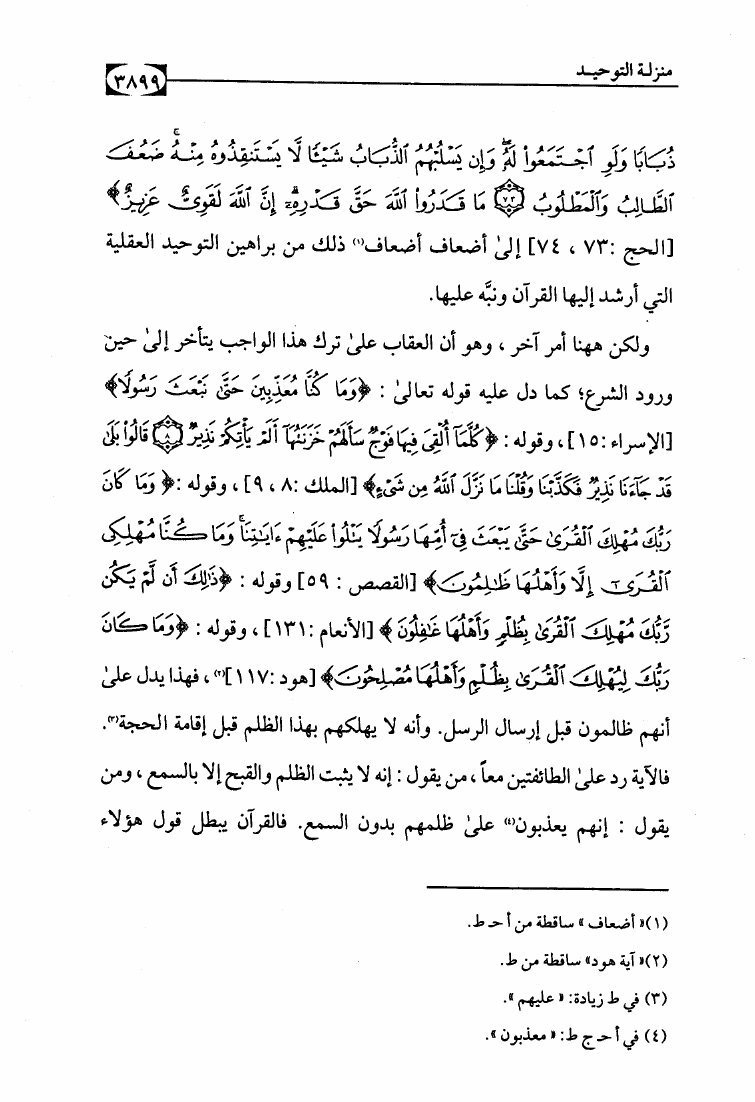 منزلة التوحيد
٣٨٩٩
ذُبَابًا وَلَوِ ٱجْتَمَعُوا۟ لَهُۥ ۖ وَإِن يَسْلُبْهُمُ ٱلذُّبَابُ شَيْـًٔا لَّا يَسْتَنقِذُوهُ مِنْهُ ۚ ضَعُفَ
ٱلطَّالِبُ وَٱلْمَطْلُوبُ ۝٧٣ مَا قَدَرُوا۟ ٱللَّهَ حَقَّ قَدْرِهِۦٓ ۗ إِنَّ ٱللَّهَ لَقَوِىٌّ عَزِيزٌ﴾
[الحج :٧٣ ، ٧٤] إلىٰ أضعاف أضعاف(١) ذلك من براهين التوحيد العقلية
التي أرشد إليها القرآن ونبَّه عليها.
ولكن ههنا أمر آخر ، وهو أن العقاب علىٰ ترك هذا الواجب يتأخر إلىٰ حين
ورود الشرع؛ كما دل عليه قوله تعالىٰ : ﴿وَمَا كُنَّا مُعَذِّبِينَ حَتَّىٰ نَبْعَثَ رَسُولًا﴾
[الإسراء :١٥] ، وقوله : ﴿كُلَّمَآ أُلْقِىَ فِيهَا فَوْجٌ سَأَلَهُمْ خَزَنَتُهَآ أَلَمْ يَأْتِكُمْ نَذِيرٌ ۝٨ قَالُوا۟ بَلَىٰ
قَدْ جَآءَنَا نَذِيرٌ فَكَذَّبْنَا وَقُلْنَا مَا نَزَّلَ ٱللَّهُ مِن شَىْءٍ﴾ [الملك :٨ ، ٩] ، وقوله :﴿ وَمَا كَانَ
رَبُّكَ مُهْلِكَ ٱلْقُرَىٰ حَتَّىٰ يَبْعَثَ فِىٓ أُمِّهَا رَسُولًا يَتْلُوا۟ عَلَيْهِمْ ءَايَٰتِنَا ۚ وَمَا كُنَّا مُهْلِكِى
ٱلْقُرَىٰٓ إِلَّا وَأَهْلُهَا ظَٰلِمُونَ﴾ [القصص : ٥٩] وقوله : ﴿ذَٰلِكَ أَن لَّمْ يَكُن
رَّبُّكَ مُهْلِكَ ٱلْقُرَىٰ بِظُلْمٍ وَأَهْلُهَا غَٰفِلُونَ ﴾ [الأنعام :١٣١] ، وقوله : ﴿وَمَا كَانَ
رَبُّكَ لِيُهْلِكَ ٱلْقُرَىٰ بِظُلْمٍ وَأَهْلُهَا مُصْلِحُونَ﴾ [هود :١١٧](٢) ، فهذا يدل علىٰ
أنهم ظالمون قبل إرسال الرسل. وأنه لا يهلكهم بهذا الظلم قبل إقامة الحجة(٣).
فالآية رد علىٰ الطائفتين معاً ، من يقول : إنه لا يثبت الظلم والقبح إلا بالسمع ، ومن
يقول : إنهم يعذبون(٤) علىٰ ظلمهم بدون السمع. فالقرآن يبطل قول هؤلاء
(١)« أضعاف » ساقطة من أ حـ ط.
(٢)« آية هود» ساقطة من ط.
(٣) في ط زيادة: « عليهم ».
(٤) في أ حـ ج ط: « معذبون ».